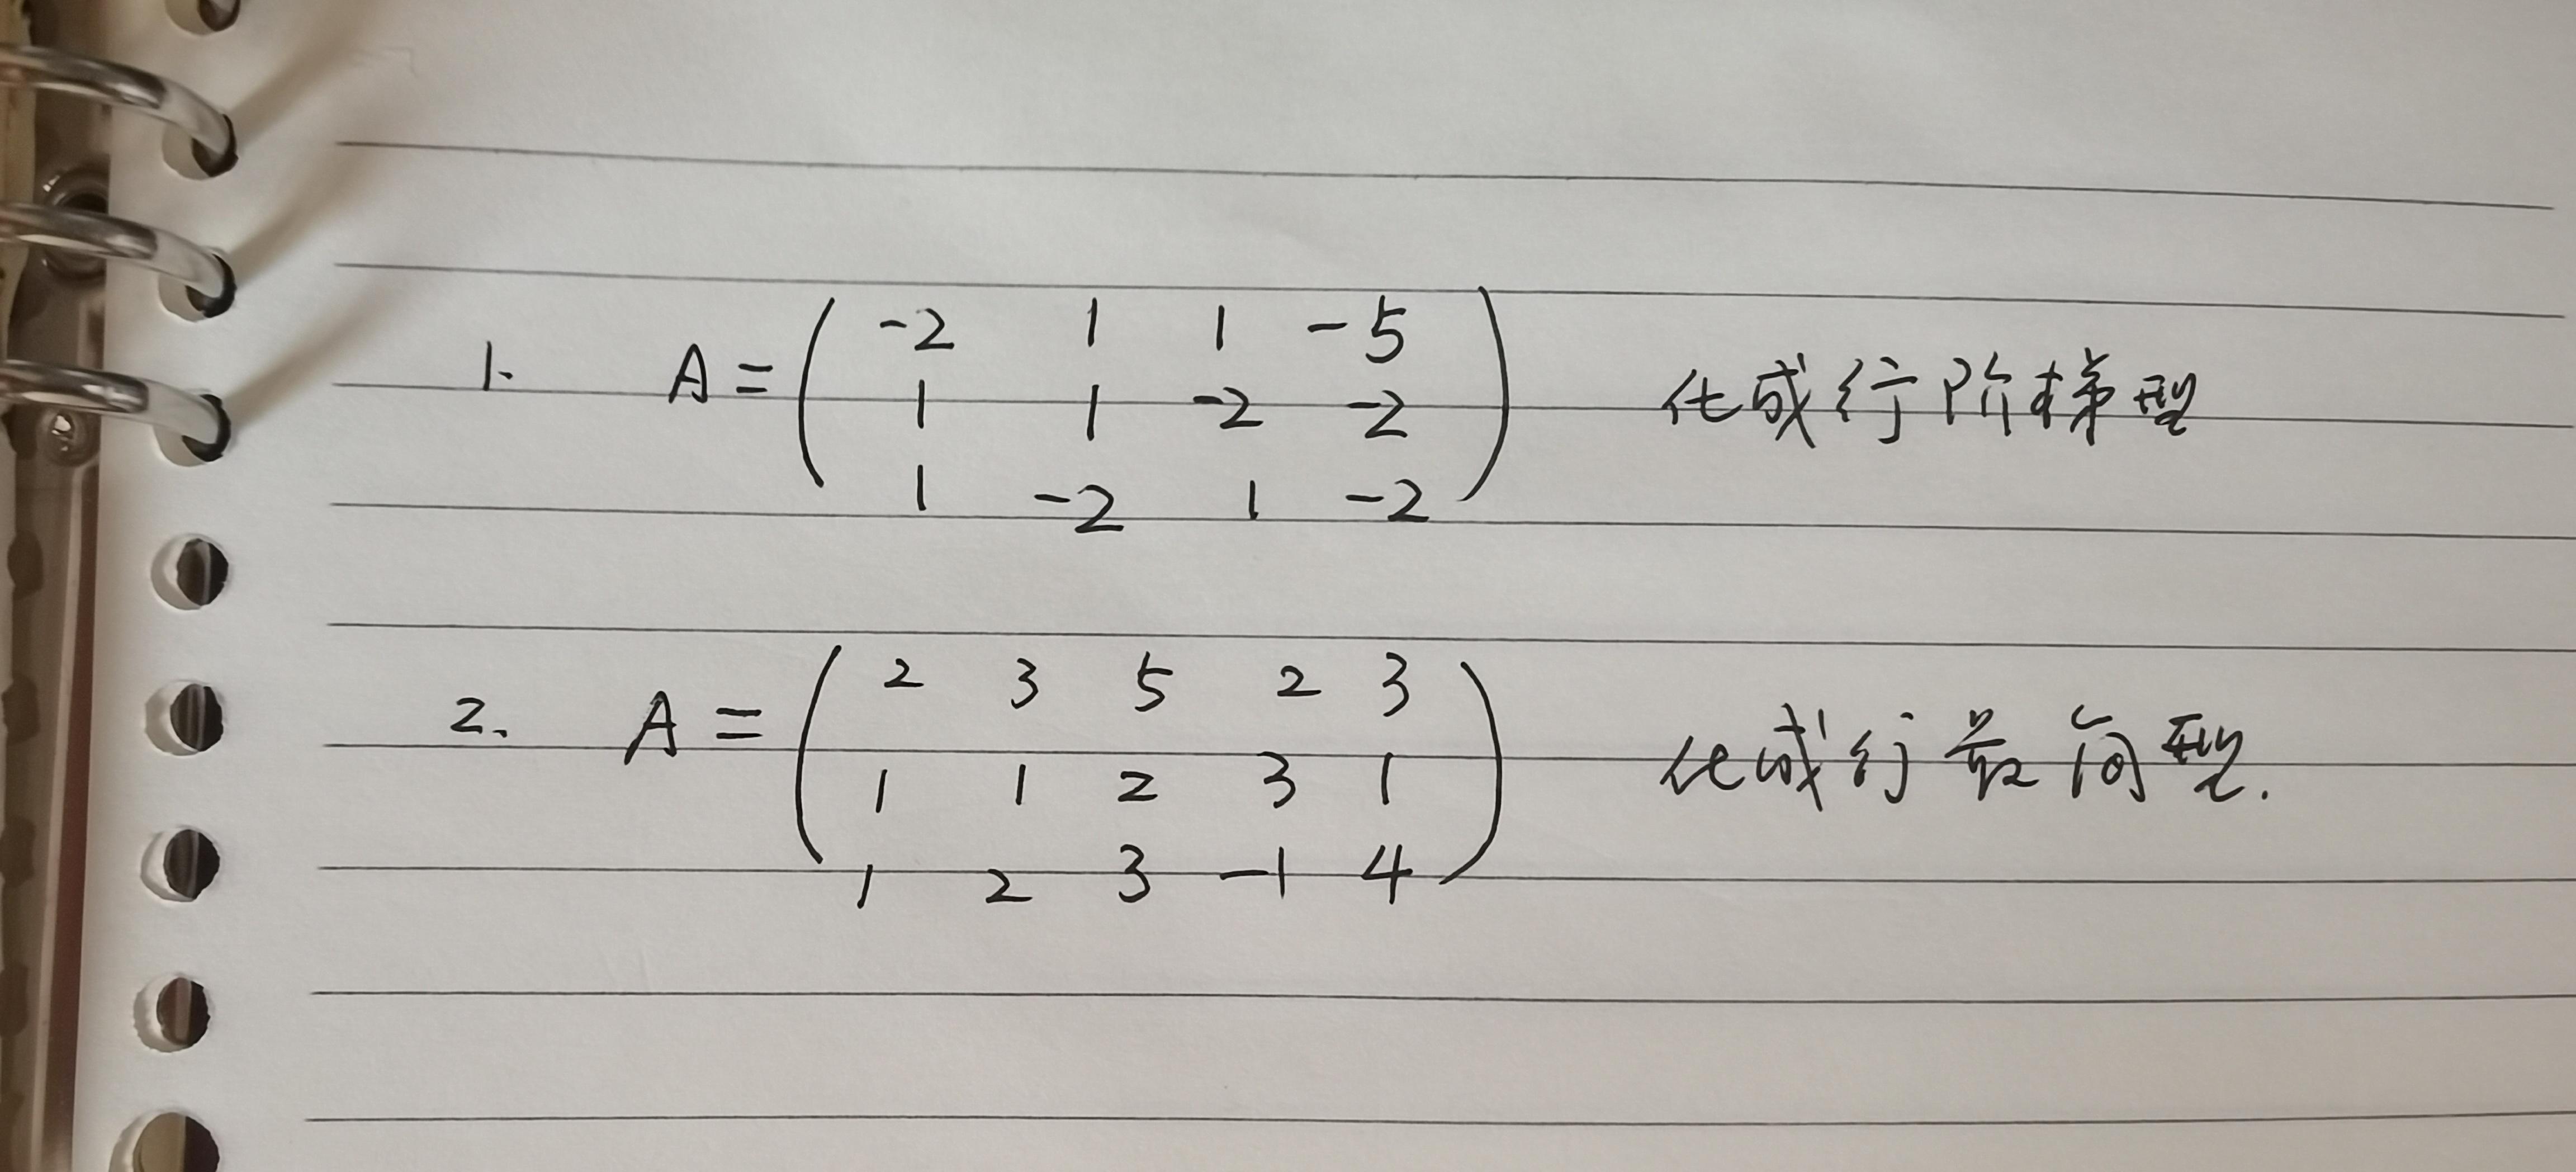 1. A = ( -2 1 1 -5 化成行阶梯型
1 1 -2 -2
1 -2 1 -2 )
2. A = ( 2 3 5 2 3 化成行最简型.
1 1 2 3 1
1 2 3 -1 4 )